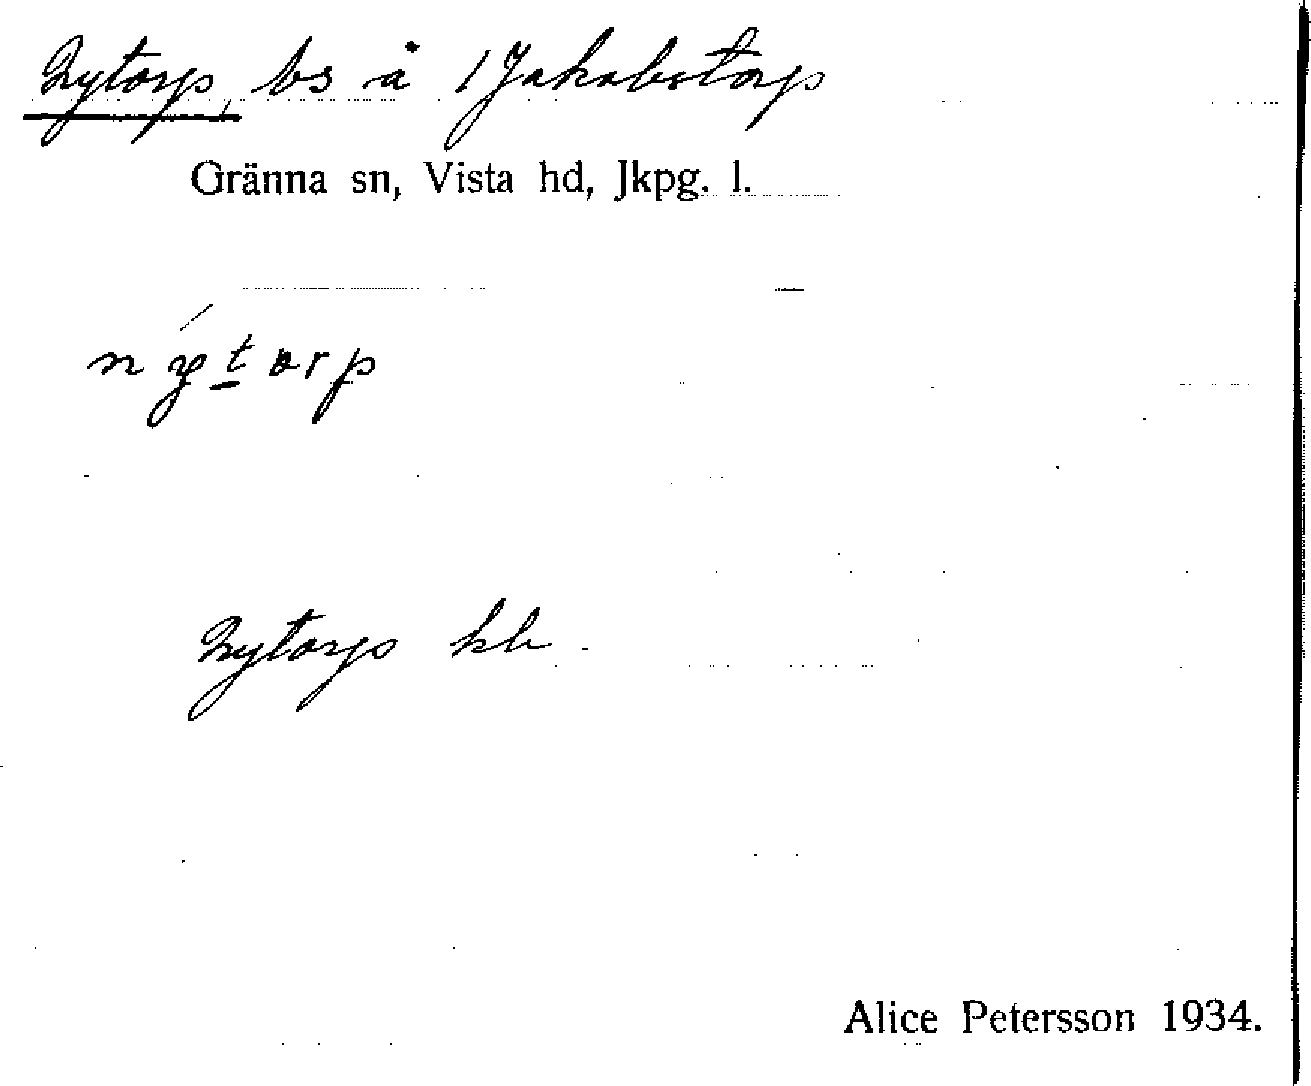 Nytorp, bs å 1 Jakobstorp
Gränna sn, Vista hd, Jkpg. l.
nýtorp
Nytorps hb
Alice Petersson 1934.